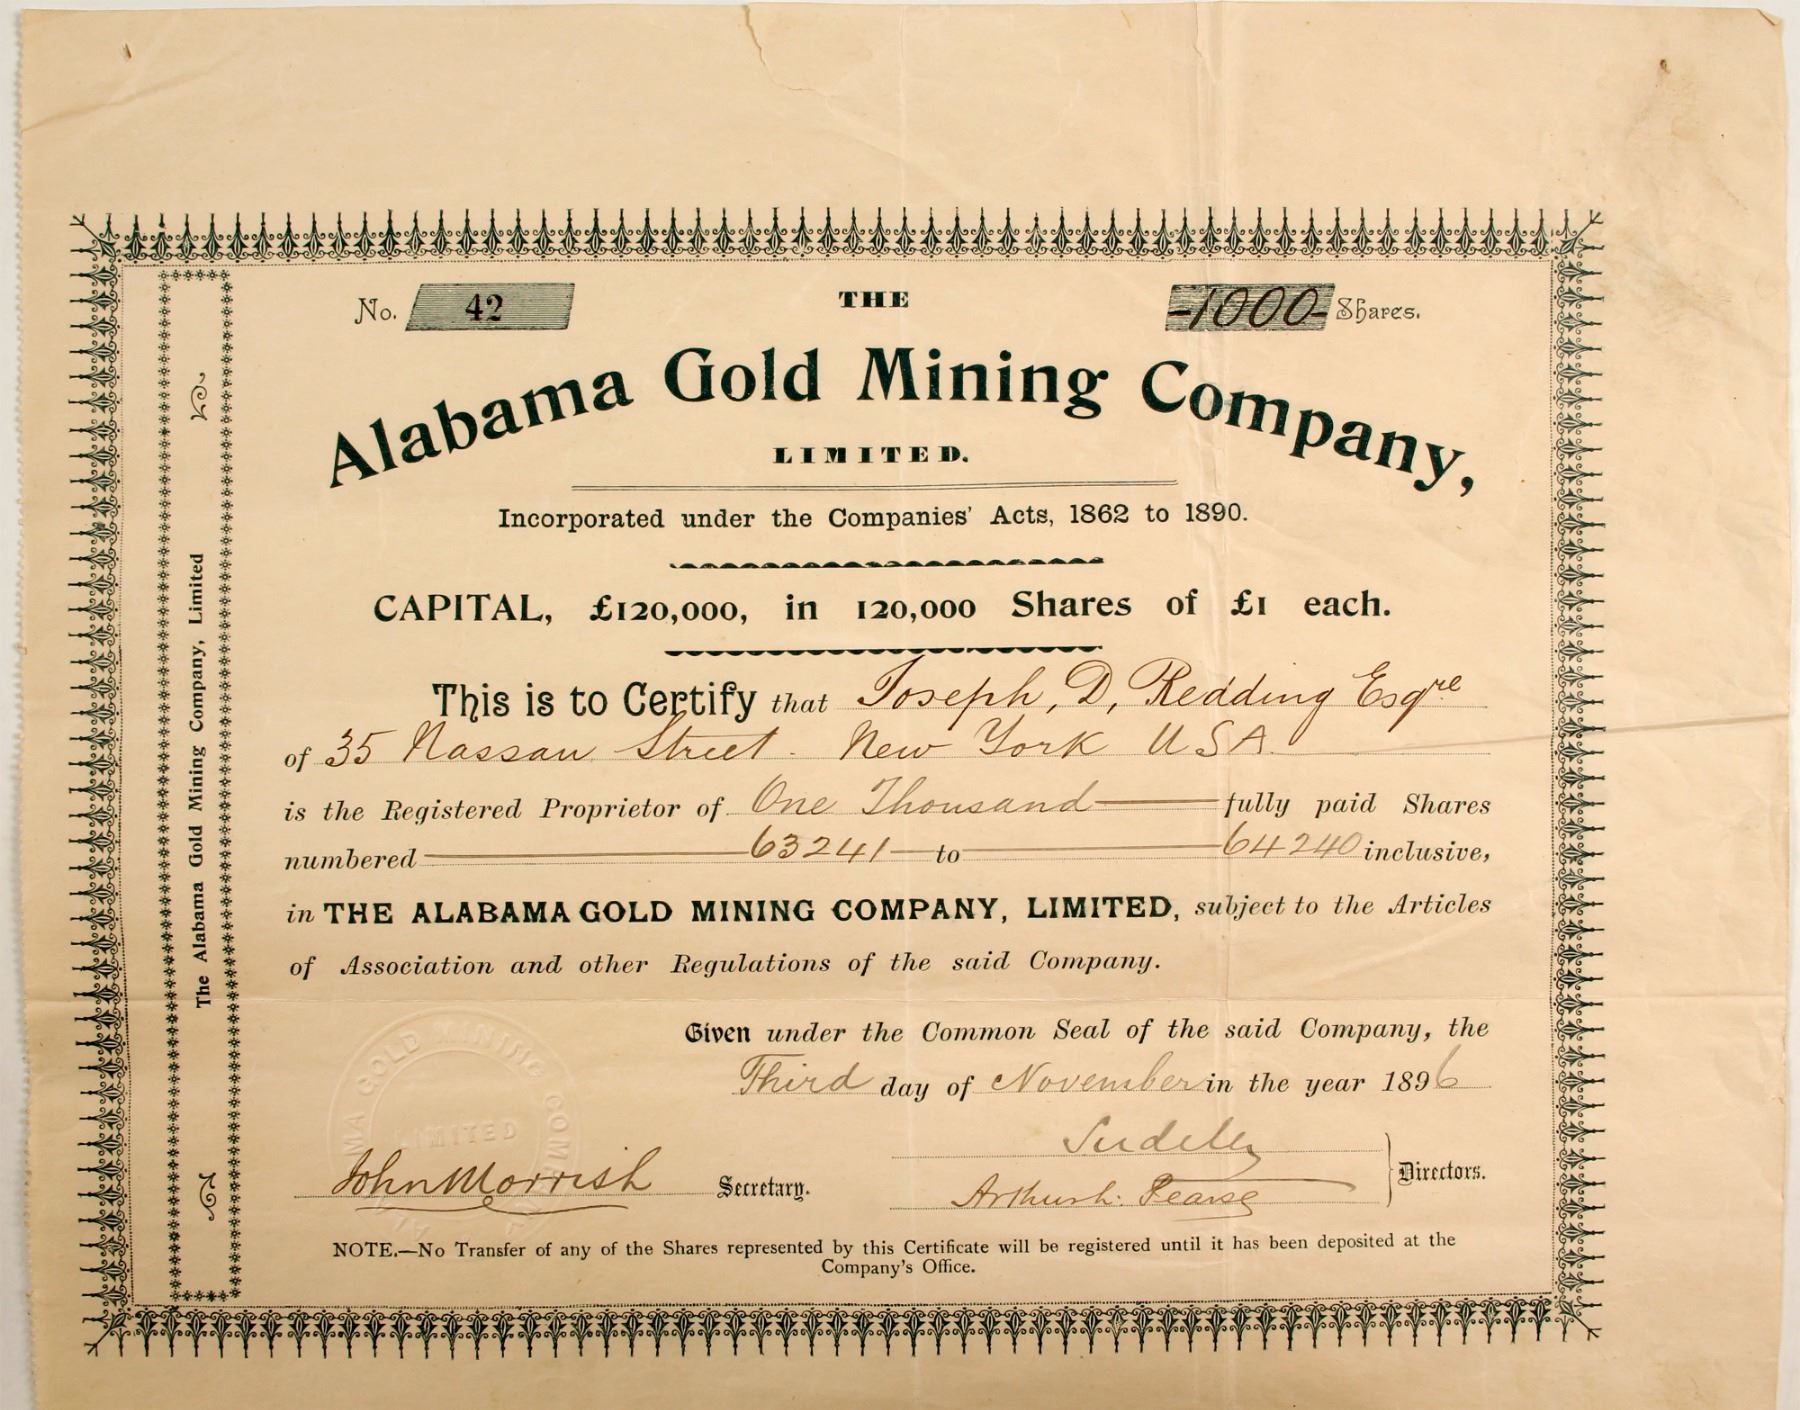 No. 42
THE
-1000- Shares.
Alabama Gold Mining Company,
LIMITED.
Incorporated under the Companies' Acts, 1862 to 1890.
CAPITAL, £120,000, in 120,000 Shares of £1 each.
This is to Certify that Joseph, D, Redding Esqre
of 35 Nassau Street. New York USA.
is the Registered Proprietor of One Thousand fully paid Shares
numbered 63241 to 64240 inclusive,
in THE ALABAMA GOLD MINING COMPANY, LIMITED, subject to the Articles
of Association and other Regulations of the said Company.
Given under the Common Seal of the said Company, the
Third day of November in the year 1896
Sudeley
John Morrish Secretary.
Arthur L. Pearse
Directors.
NOTE.—No Transfer of any of the Shares represented by this Certificate will be registered until it has been deposited at the
Company's Office.
The Alabama Gold Mining Company, Limited
GOLD MINING COM
LIMITED